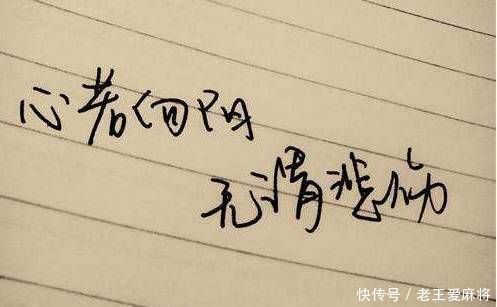 心若向阳
无谓悲伤
快传号 / 老王爱麻将